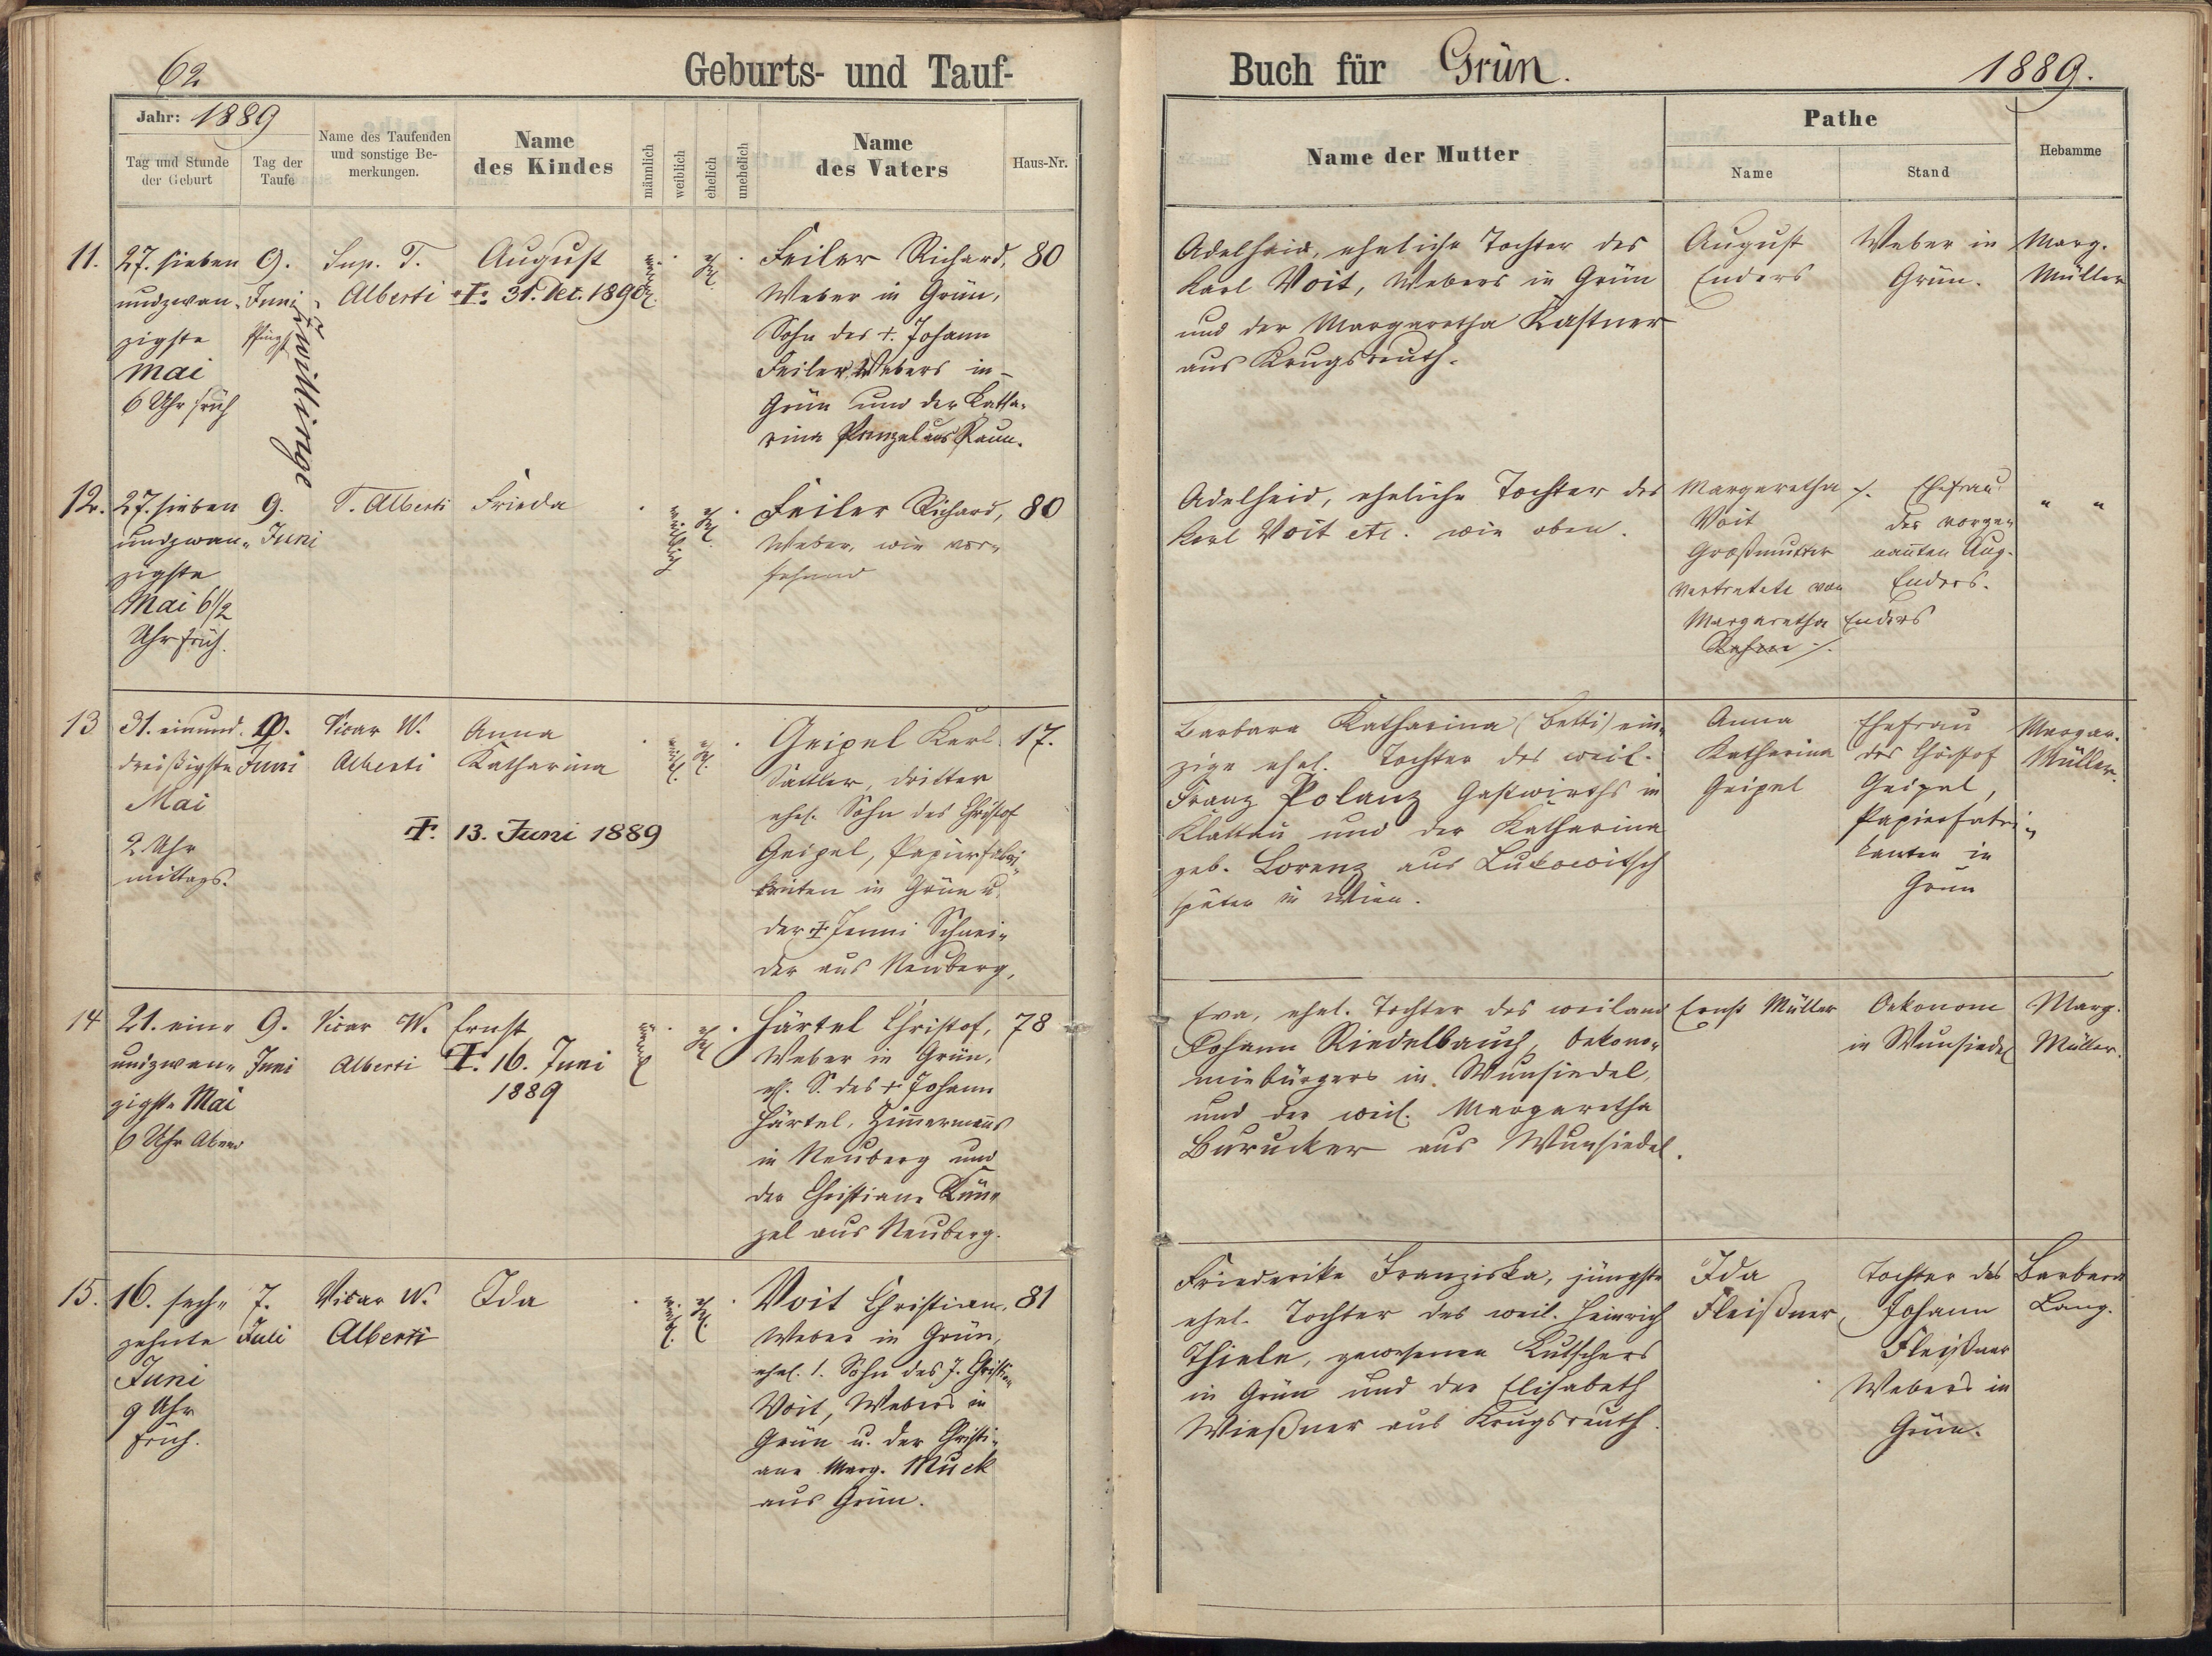 62
Geburts- und Tauf-
Jahr: 1889
Tag und Stunde
der Geburt
Tag der
Taufe
Name des Taufenden
und sonstige Be-
merkungen.
Name
des Kindes
männlich
weiblich
ehelich
unehelich
Name
des Vaters
Haus-Nr.
11.
27. sieben
undzwan-
zigste
Mai
6 Uhr früh
9.
Juni
Pfingst
Zwillinge
Sup. T.
Alberti
August
†. 31. Dec. 1890
männl.
ehel.
Feiler Richard,
Weber in Grün,
Sohn des †. Johann
Feiler Webers in
Grün und der Katha-
rina Penzel aus Raun.
80
12.
27. sieben
undzwan-
zigste
Mai 6 1/2
Uhr früh.
9.
Juni
T. Alberti
Frieda
weiblich
ehel.
Feiler Richard,
Weber, wie vor-
stehend
80
13
31. einund-
dreißigste
Mai
2 Uhr
mittags.
9.
Juni
Vicar W.
Alberti
Anna
Katharina
†. 13. Juni 1889
weibl.
ehel.
Geipel Karl
Sattler, dritter
ehel. Sohn des Christof
Geipel, Papierfabri-
kanten in Grün u.
der † Jenni Schnei-
der aus Neuberg.
17.
14
21. ein-
undzwan-
zigste Mai
6 Uhr Abend
9.
Juni
Vicar W.
Alberti
Ernst
†. 16. Juni
1889
männl.
ehel.
Härtel Christof,
Weber in Grün,
ehl. S. des † Johann
Härtel, Zimmermanns
in Neuberg und
der Christiane Kün-
zel aus Neuberg.
78
15.
16. sech-
zehnte
Juni
9 Uhr
früh.
7.
Juli
Vicar W.
Alberti
Ida
weibl.
ehel.
Voit Christian,
Weber in Grün,
ehel. 1. Sohn des J. Christian
Voit, Webers in
Grün u. der Christi-
ane Marg. Muck
aus Grün.
81
Buch für Grün.
1889.
Name der Mutter
Pathe
Name
Stand
Hebamme
Adelheid, eheliche Tochter des
Karl Voit, Webers in Grün
und der Margaretha Kastner
aus Krugsreuth.
August
Enders
Weber in
Grün.
Marg.
Müller
Adelheid, eheliche Tochter des
Karl Voit etc. wie oben.
Margaretha
Voit
Großmutter
vertretete von
Margaretha Enders
Ehefrau
des vorge-
nannten Aug.
Enders.
" "
Barbara Katharina (Betti) ein-
zige ehel. Tochter des weil.
Franz Polanz Gastwirths in
Klattau und der Katharina
geb. Lorenz aus Lukowitsch
später in Wien.
Anna
Katharina
Geipel
Ehefrau
des Christof
Geipel,
Papierfabri-
kanten in
Grün
Margar.
Müller.
Eva, ehel. Tochter des weiland
Johann Riedelbauch, Oekono-
miebürgers in Wunsiedel,
und der weil. Margaretha
Burucker aus Wunsiedel.
Ernst Müller
Oekonom
in Wunsiedel
Marg.
Müller.
Friederike Franziska, jüngste
ehel. Tochter des weil. Heinrich
Thiele, gewesenen Kutschers
in Grün und der Elisabeth
Wießner aus Krugsreuth.
Ida
Fleißner,
Tochter des
Johann
Fleißner
Webers in
Grün.
Barbara
Lang.